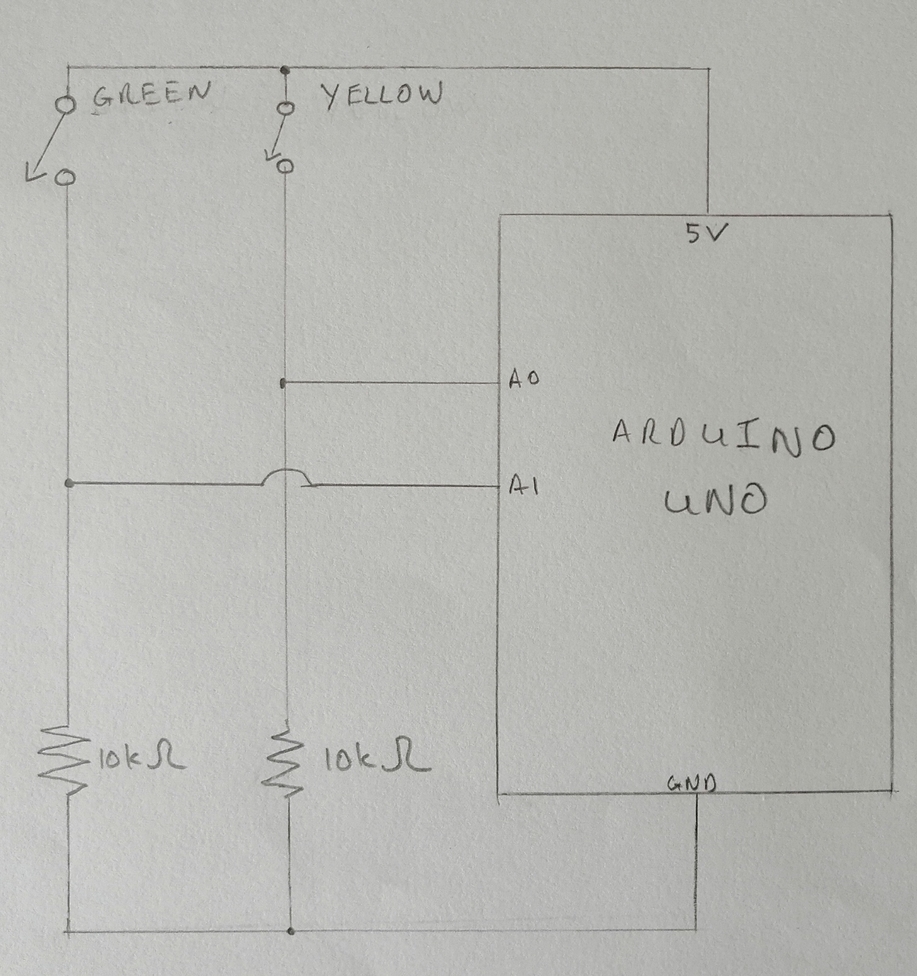 GREEN
YELLOW
5V
A0
ARDUINO
UNO
A1
10kΩ
10kΩ
GND